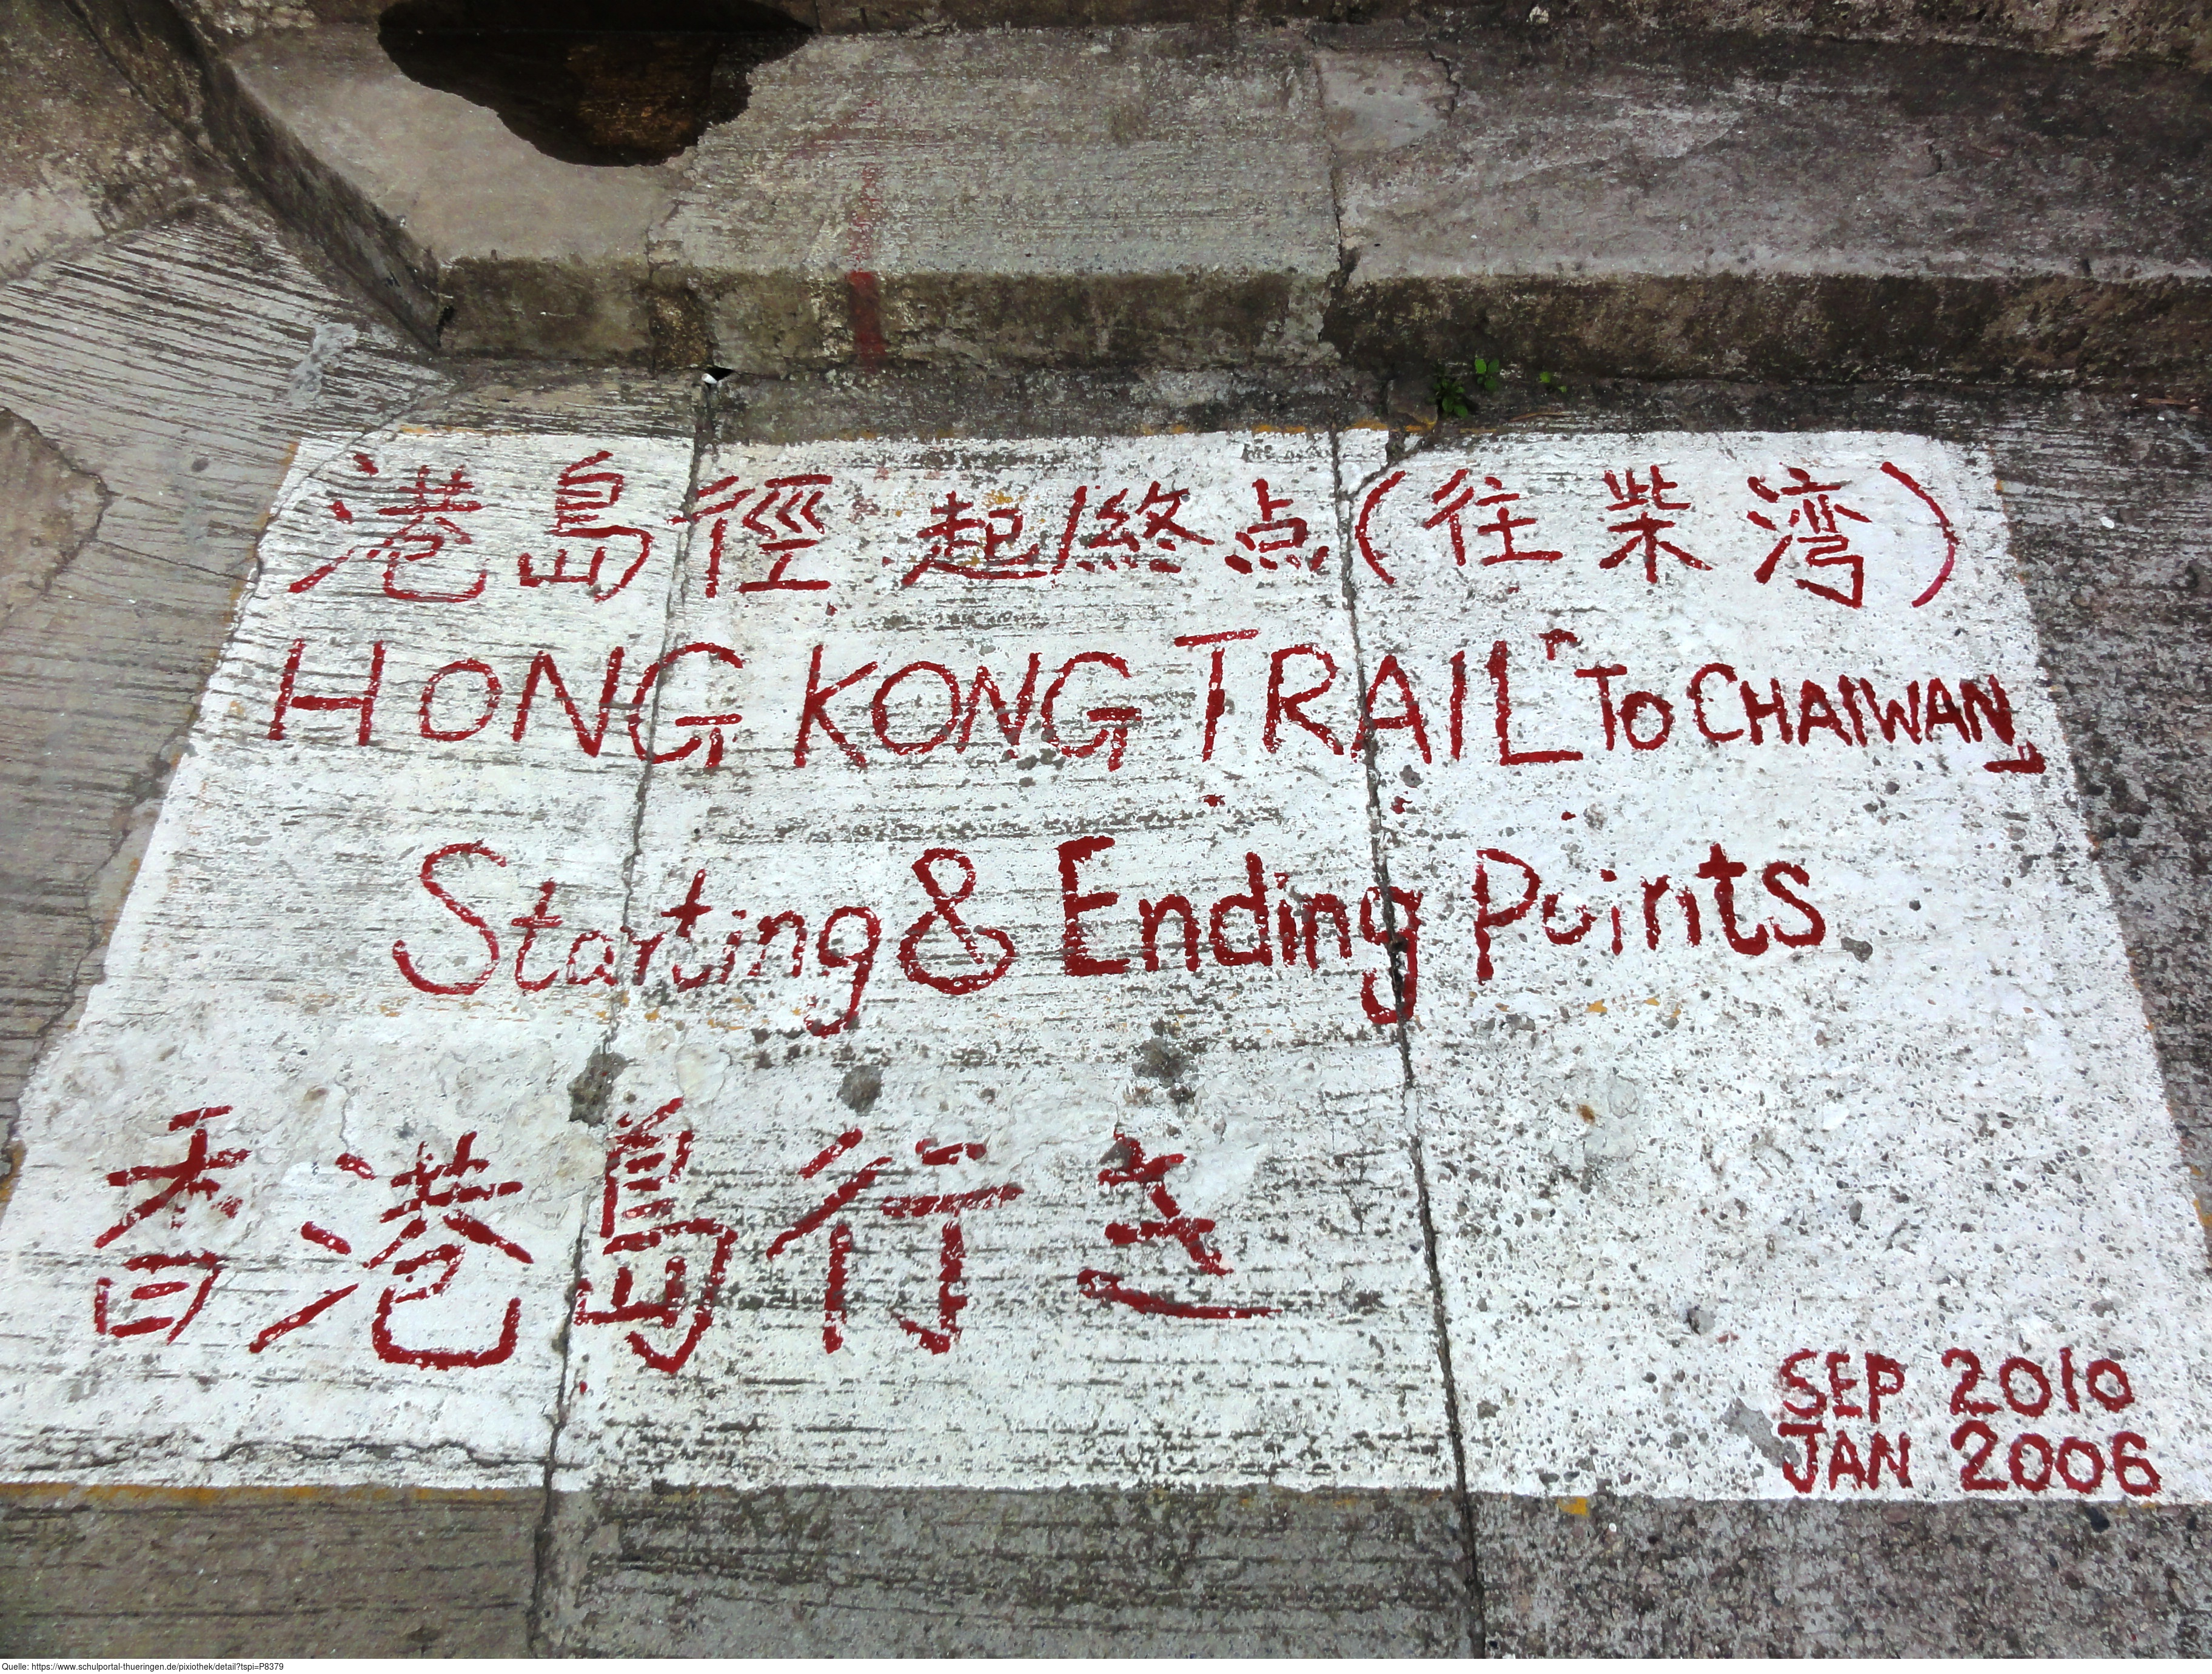 港島徑 起/終点(往柴湾)
HONG KONG TRAIL「TO CHAIWAN」
Starting & Ending Points
香港島行き
SEP 2010
JAN 2006
Quelle: https://www.schulportal-thueringen.de/pixiothek/detail?tspi=P8379